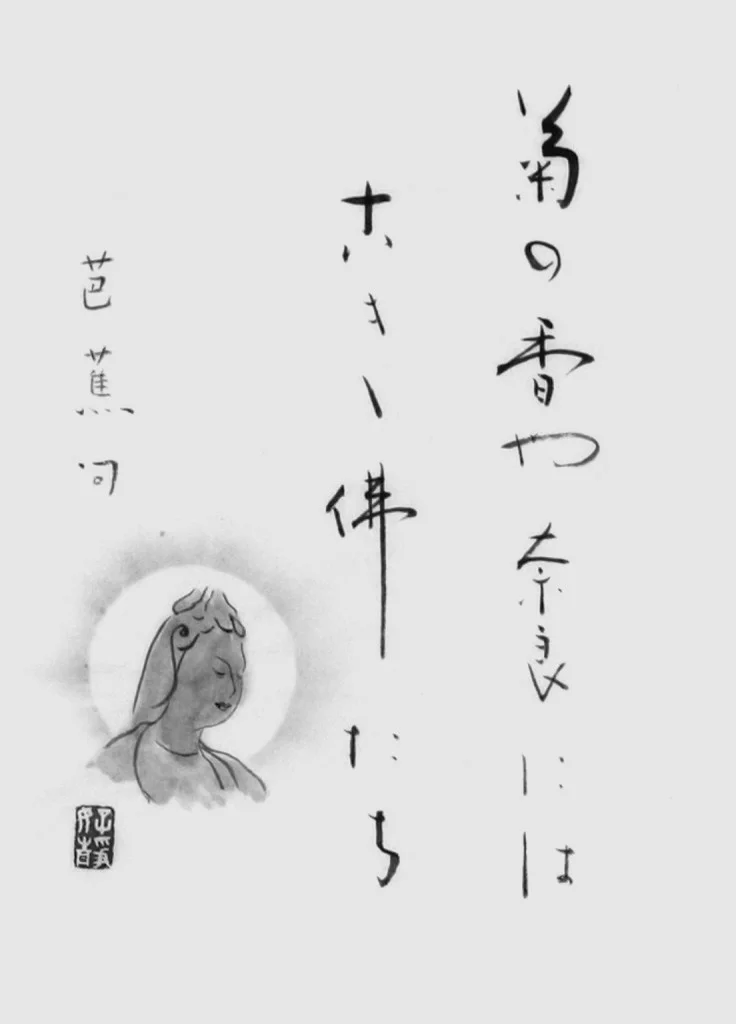 菊の香や奈良には
古き佛たち
芭蕉句